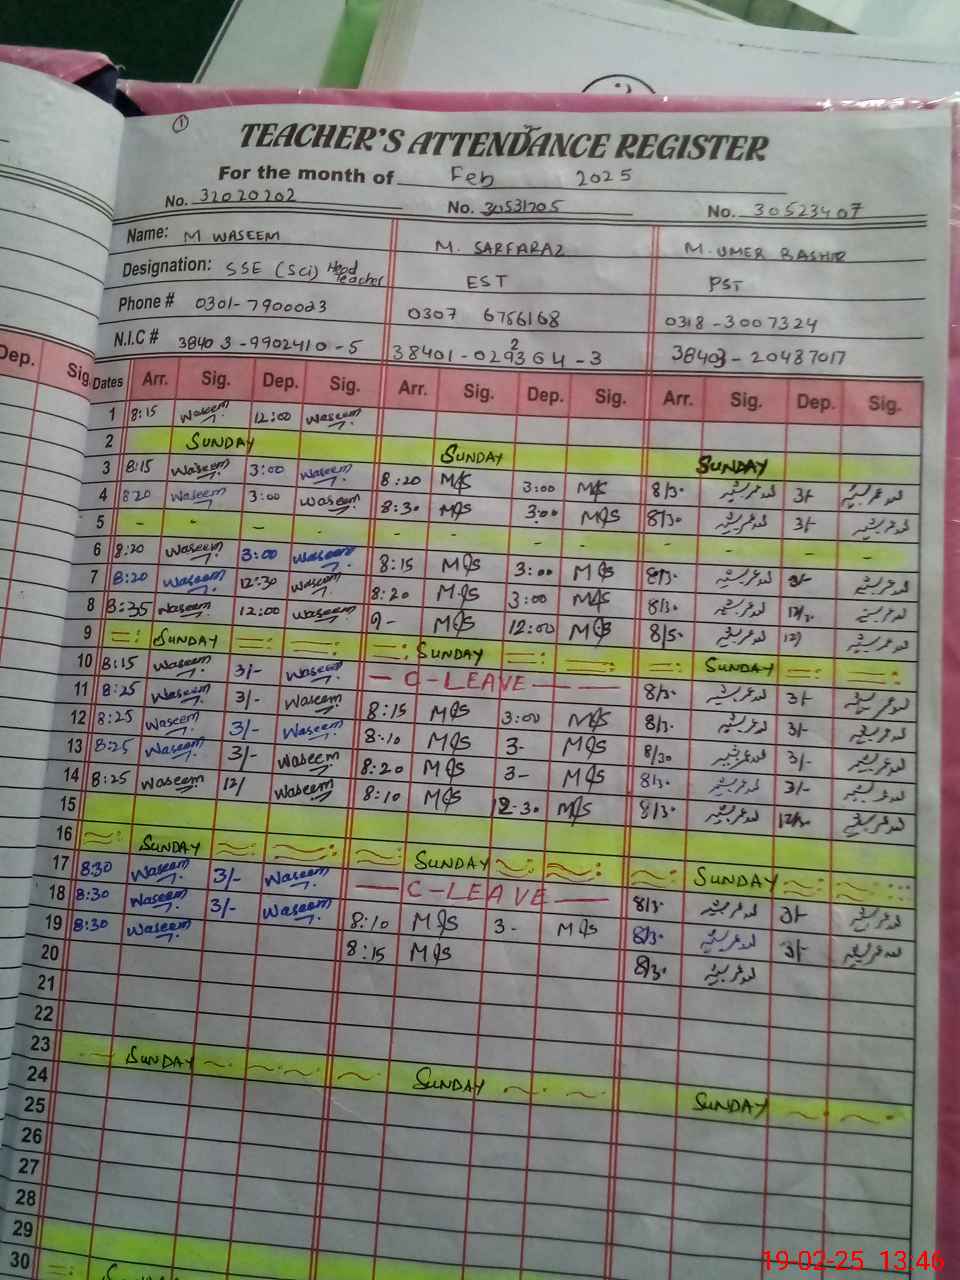 1
TEACHER'S ATTENDANCE REGISTER
For the month of Feb 2025
No. 32020202 No. 30531705 No. 30523407
Name: M WASEEM M. SARFARAZ M. UMER BASHIR
Designation: SSE (Sci) Head Teacher EST PST
Phone # 0301-7900023 0307 6756168 0318-3007324
N.I.C # 38403-9902410-5 38401-0293264-3 38403-20487017
Dep. Sig. Dates Arr. Sig. Dep. Sig. Arr. Sig. Dep. Sig. Arr. Sig. Dep. Sig.
1 8:15 Waseem 12:00 Waseem
2 SUNDAY SUNDAY SUNDAY
3 8:15 Waseem 3:00 Waseem 8:20 MS 3:00 MS 8/30 3/-
4 8:20 Waseem 3:00 Waseem 8:30 MS 3:00 MS 8/30 3/-
5 - - - - - - - - - -
6 8:20 Waseem 3:00 Waseem 8:15 MS 3:00 MS 8/30 3/-
7 8:20 Waseem 12:30 Waseem 8:20 MS 3:00 MS 8/30 12/30
8 8:35 Waseem 12:00 Waseem 9- MS 12:00 MS 8/50 12/
9 SUNDAY SUNDAY SUNDAY
10 8:15 Waseem 3/- Waseem C-LEAVE 8/30 3/-
11 8:25 Waseem 3/- Waseem 8:15 MS 3:00 MS 8/30 3/-
12 8:25 Waseem 3/- Waseem 8:10 MS 3- MS 8/30 3/-
13 8:25 Waseem 3/- Waseem 8:20 MS 3- MS 8/30 3/-
14 8:25 Waseem 12/ Waseem 8:10 MS 12-30 MS 8/30 12/30
15
16 SUNDAY SUNDAY SUNDAY
17 8:30 Waseem 3/- Waseem C-LEAVE 8/30 3/-
18 8:30 Waseem 3/- Waseem 8:10 MS 3- MS 8/30 3/-
19 8:30 Waseem 8:15 MS 8/30
20
21
22
23 SUNDAY SUNDAY SUNDAY
24
25
26
27
28
29
30
19-02-25 13:46